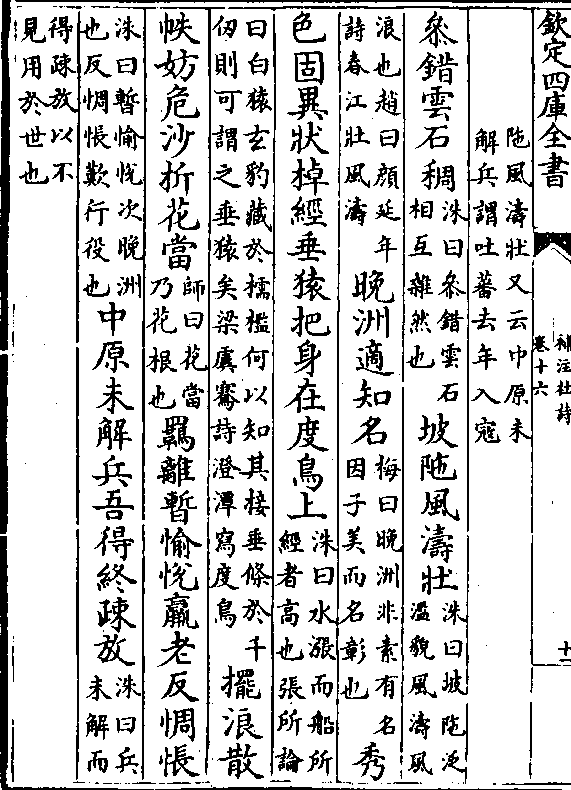 欽定四庫全書
補注杜詩
卷十六
十一
陁風濤壮又云中原未
解兵謂吐蕃去年入冦
叅錯雲石稠洙曰叅錯雲石相互雜然也坡陁風濤壮洙曰坡陁泛濫貌風濤風
浪也趙曰顔延年詩春江壮風濤晚洲適知名梅曰晚洲非素有名因子美而名彰也秀
色固異狀棹經垂猿把身在度鳥上洙曰水漲而船所經者高也張所論
曰白猿玄豹藏於欞檻何以知其接垂條於千仭則可謂之垂猿矣梁虞騫詩澄潭寫度鳥擺浪散
帙妨危沙折花當師曰花當乃花根也羈離暫愉悅羸老反惆悵
洙曰暫愉悅次晚洲也反惆悵歎行役也中原未解兵吾得終疎放洙曰兵未解而
得疎放以不
見用於世也